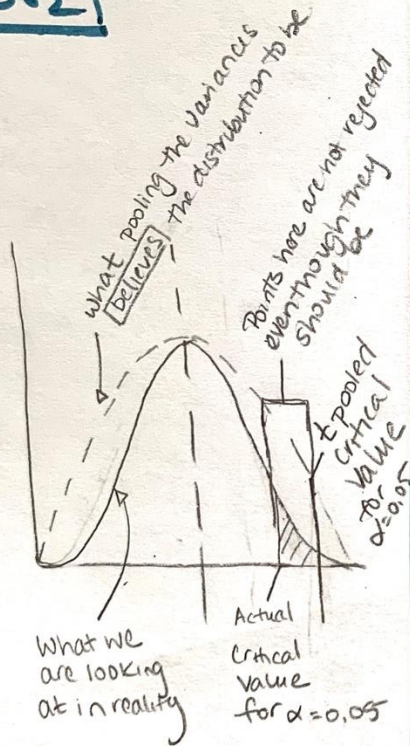 what pooling the variances
believes the distribution to be
Points here are not rejected
eventhough they
should be
t pooled
critical
value
for
α=0.05
What we
are looking
at in reality
Actual
Critical
value
for α=0.05